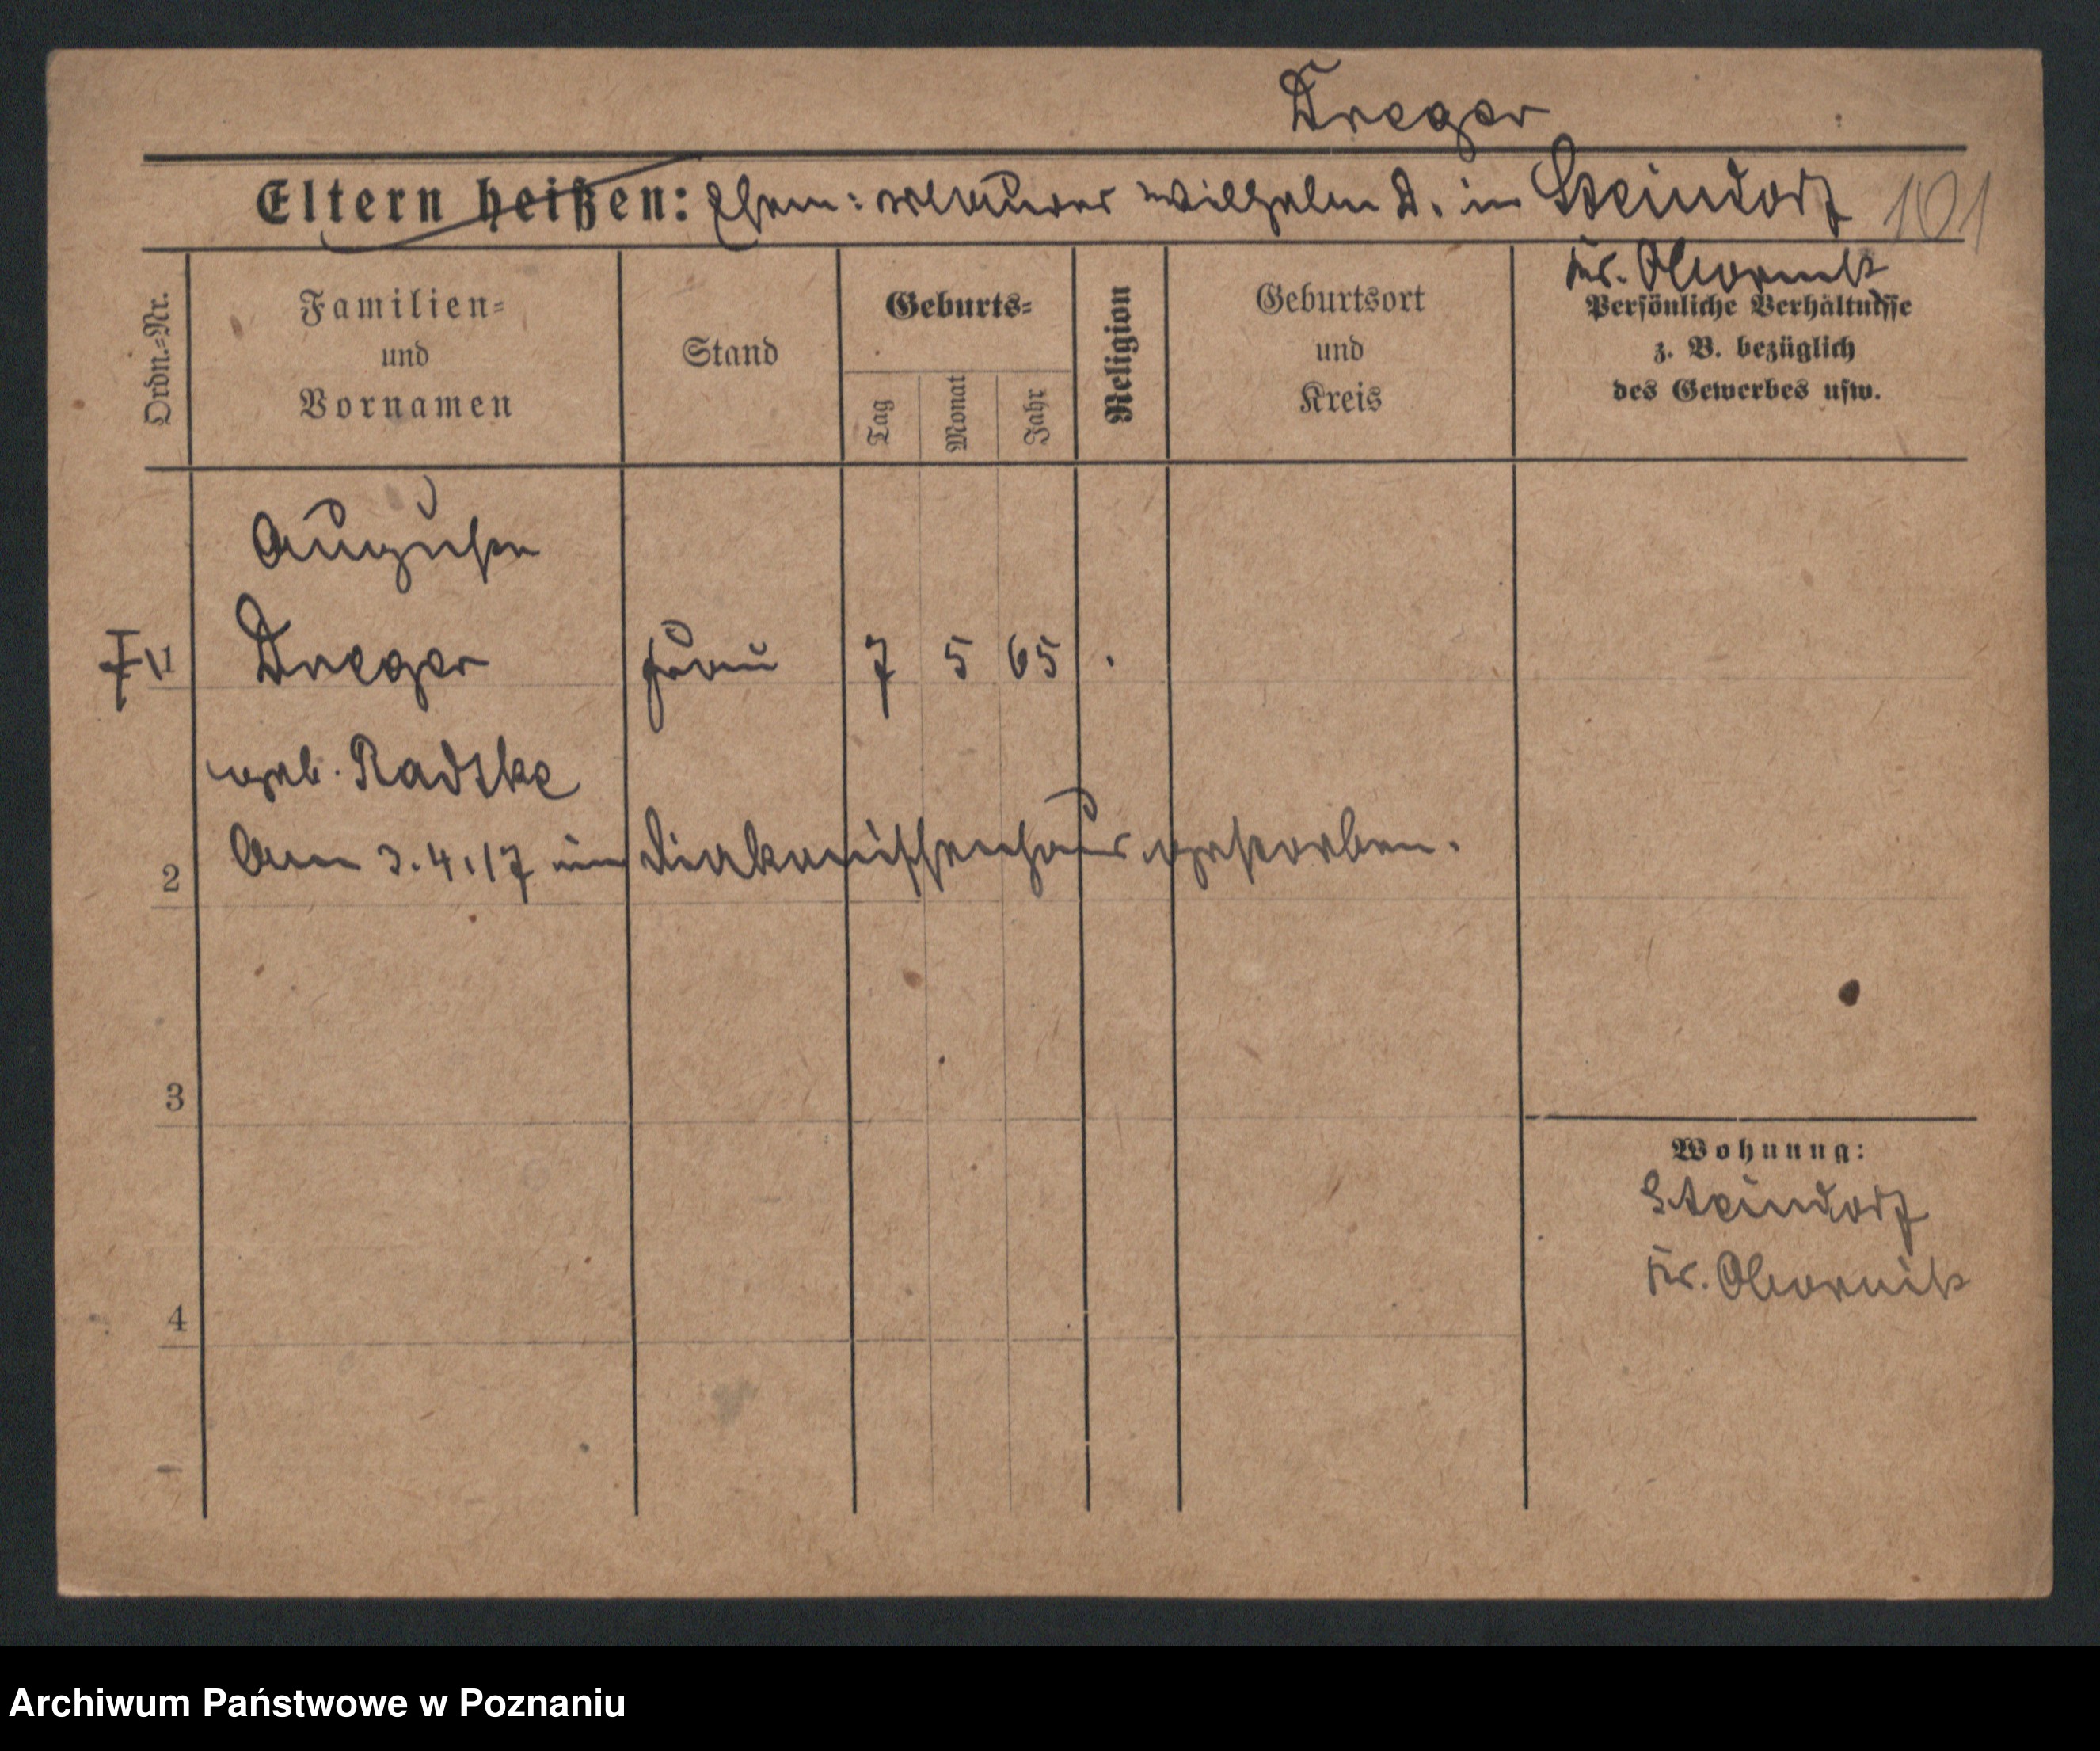 Dreger
Eltern heißen: Ehem: Maurer Wilhelm D. in Steindorf 101
Kr. Obornik
Ordn.=Nr.
Familien=
und
Vornamen
Stand
Geburts=
Tag
Monat
Jahr
Religion
Geburtsort
und
Kreis
Persönliche Verhältnisse
z. B. bezüglich
des Gewerbes usw.
Auguste
1 Dreger Frau 7 5 65
geb. Radtke
2 Am 3.4.17 im Diakonissenhaus gestorben.
3
Wohnung:
Steindorf
Kr. Obornik
4
Archiwum Państwowe w Poznaniu